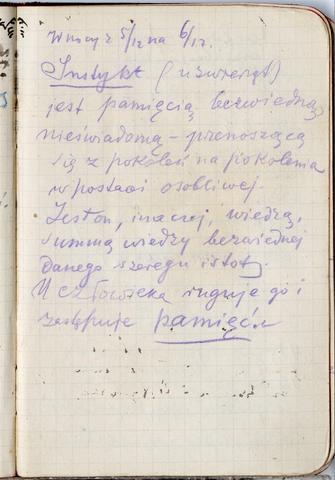 W nocy z 5/12 na 6/12.
Instykt (u zwierząt)
jest pamięcią bezwiedną,
nieświadomą – przenoszącą
się z pokoleń na pokolenia
w postaci osobliwej.
Jest on, inaczej, wiedzą,
summą wiedzy bezwiednej
danego szeregu istot.
U człowieka ruguje go i
zastępuje pamięć.